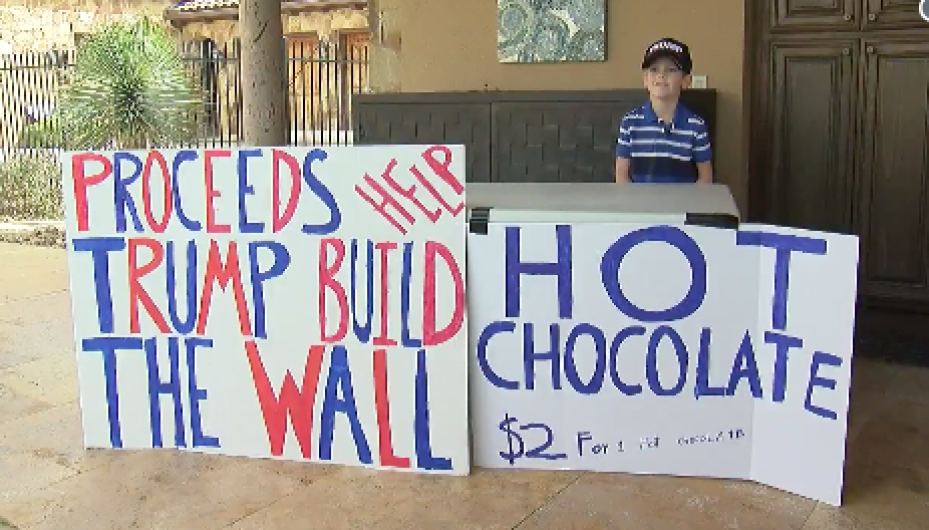 PROCEEDS HELP
TRUMP BUILD
THE WALL
HOT
CHOCOLATE
$2 For 1